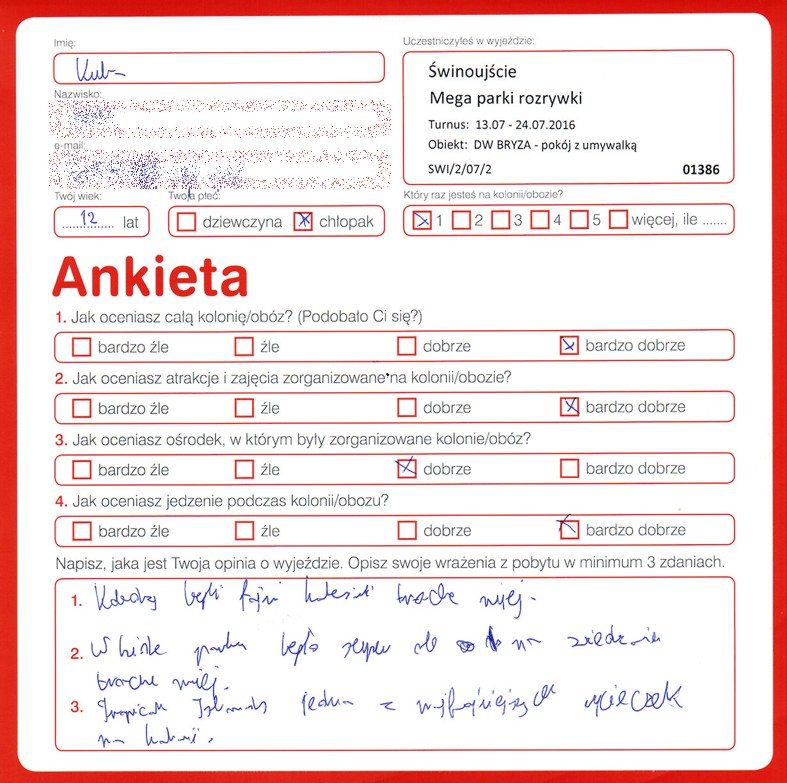 Imię:
Kuba
Nazwisko:
e-mail:
Twój wiek:
12 lat
Twoja płeć:
dziewczyna chłopak
Uczestniczyłeś w wyjeździe:
Świnoujście
Mega parki rozrywki
Turnus: 13.07 - 24.07.2016
Obiekt: DW BRYZA - pokój z umywalką
SWI/2/07/2 01386
Który raz jesteś na kolonii/obozie?
1 2 3 4 5 więcej, ile .......
Ankieta
1. Jak oceniasz całą kolonię/obóz? (Podobało Ci się?)
bardzo źle źle dobrze bardzo dobrze
2. Jak oceniasz atrakcje i zajęcia zorganizowane na kolonii/obozie?
bardzo źle źle dobrze bardzo dobrze
3. Jak oceniasz ośrodek, w którym były zorganizowane kolonie/obóz?
bardzo źle źle dobrze bardzo dobrze
4. Jak oceniasz jedzenie podczas kolonii/obozu?
bardzo źle źle dobrze bardzo dobrze
Napisz, jaka jest Twoja opinia o wyjeździe. Opisz swoje wrażenia z pobytu w minimum 3 zdaniach.
1. byli fajni troche mniej.
2. W było ale na
troche mniej.
3. Tropical Islands jedna z najfajniejszych wycieczek
na koloni.